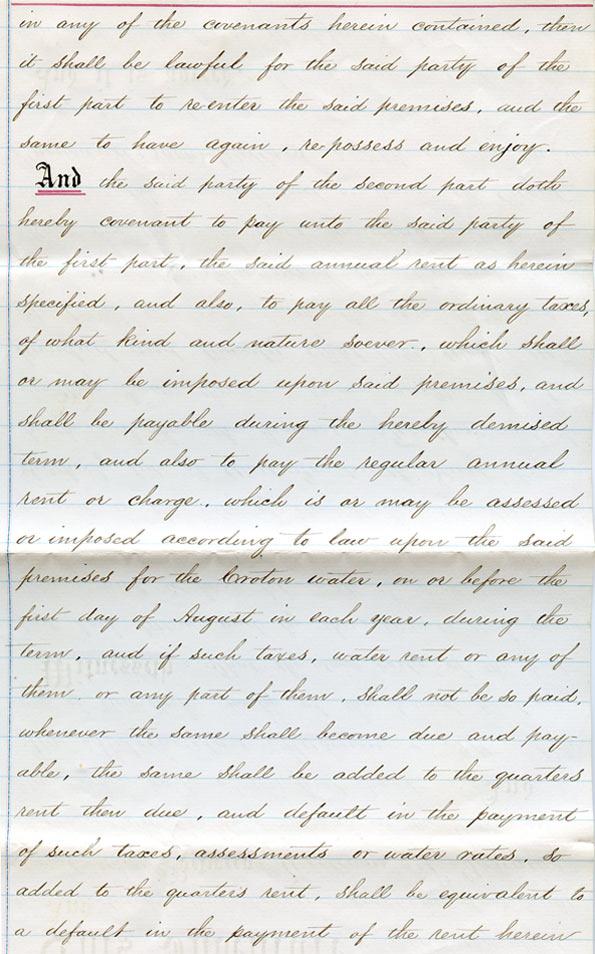 in any of the covenants herein contained, then
it shall be lawful for the said party of the
first part to re-enter the said premises, and the
same to have again, re-possess and enjoy.
And the said party of the second part doth
hereby covenant to pay unto the said party of
the first part, the said annual rent as herein
specified, and also, to pay all the ordinary taxes,
of what kind and nature soever, which shall
or may be imposed upon said premises, and
shall be payable during the hereby demised
term, and also to pay the regular annual
rent or charge, which is or may be assessed
or imposed according to law upon the said
premises for the Croton water, on or before the
first day of August in each year, during the
term, and if such taxes, water rent or any of
them or any part of them, shall not be so paid,
whenever the same shall become due and pay-
able, the same shall be added to the quarters
rent then due, and default in the payment
of such taxes, assessments or water rates, so
added to the quarters rent, shall be equivalent to
a default in the payment of the rent herein